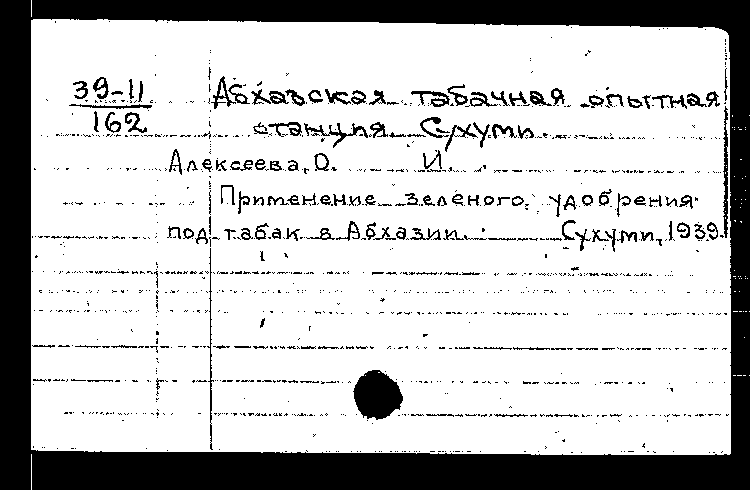 39-11
162
Абхазская табачная опытная
станция. Сухуми.
Алексеева, О. И.
Применение зеленого удобрения
под табак в Абхазии. Сухуми, 1939.